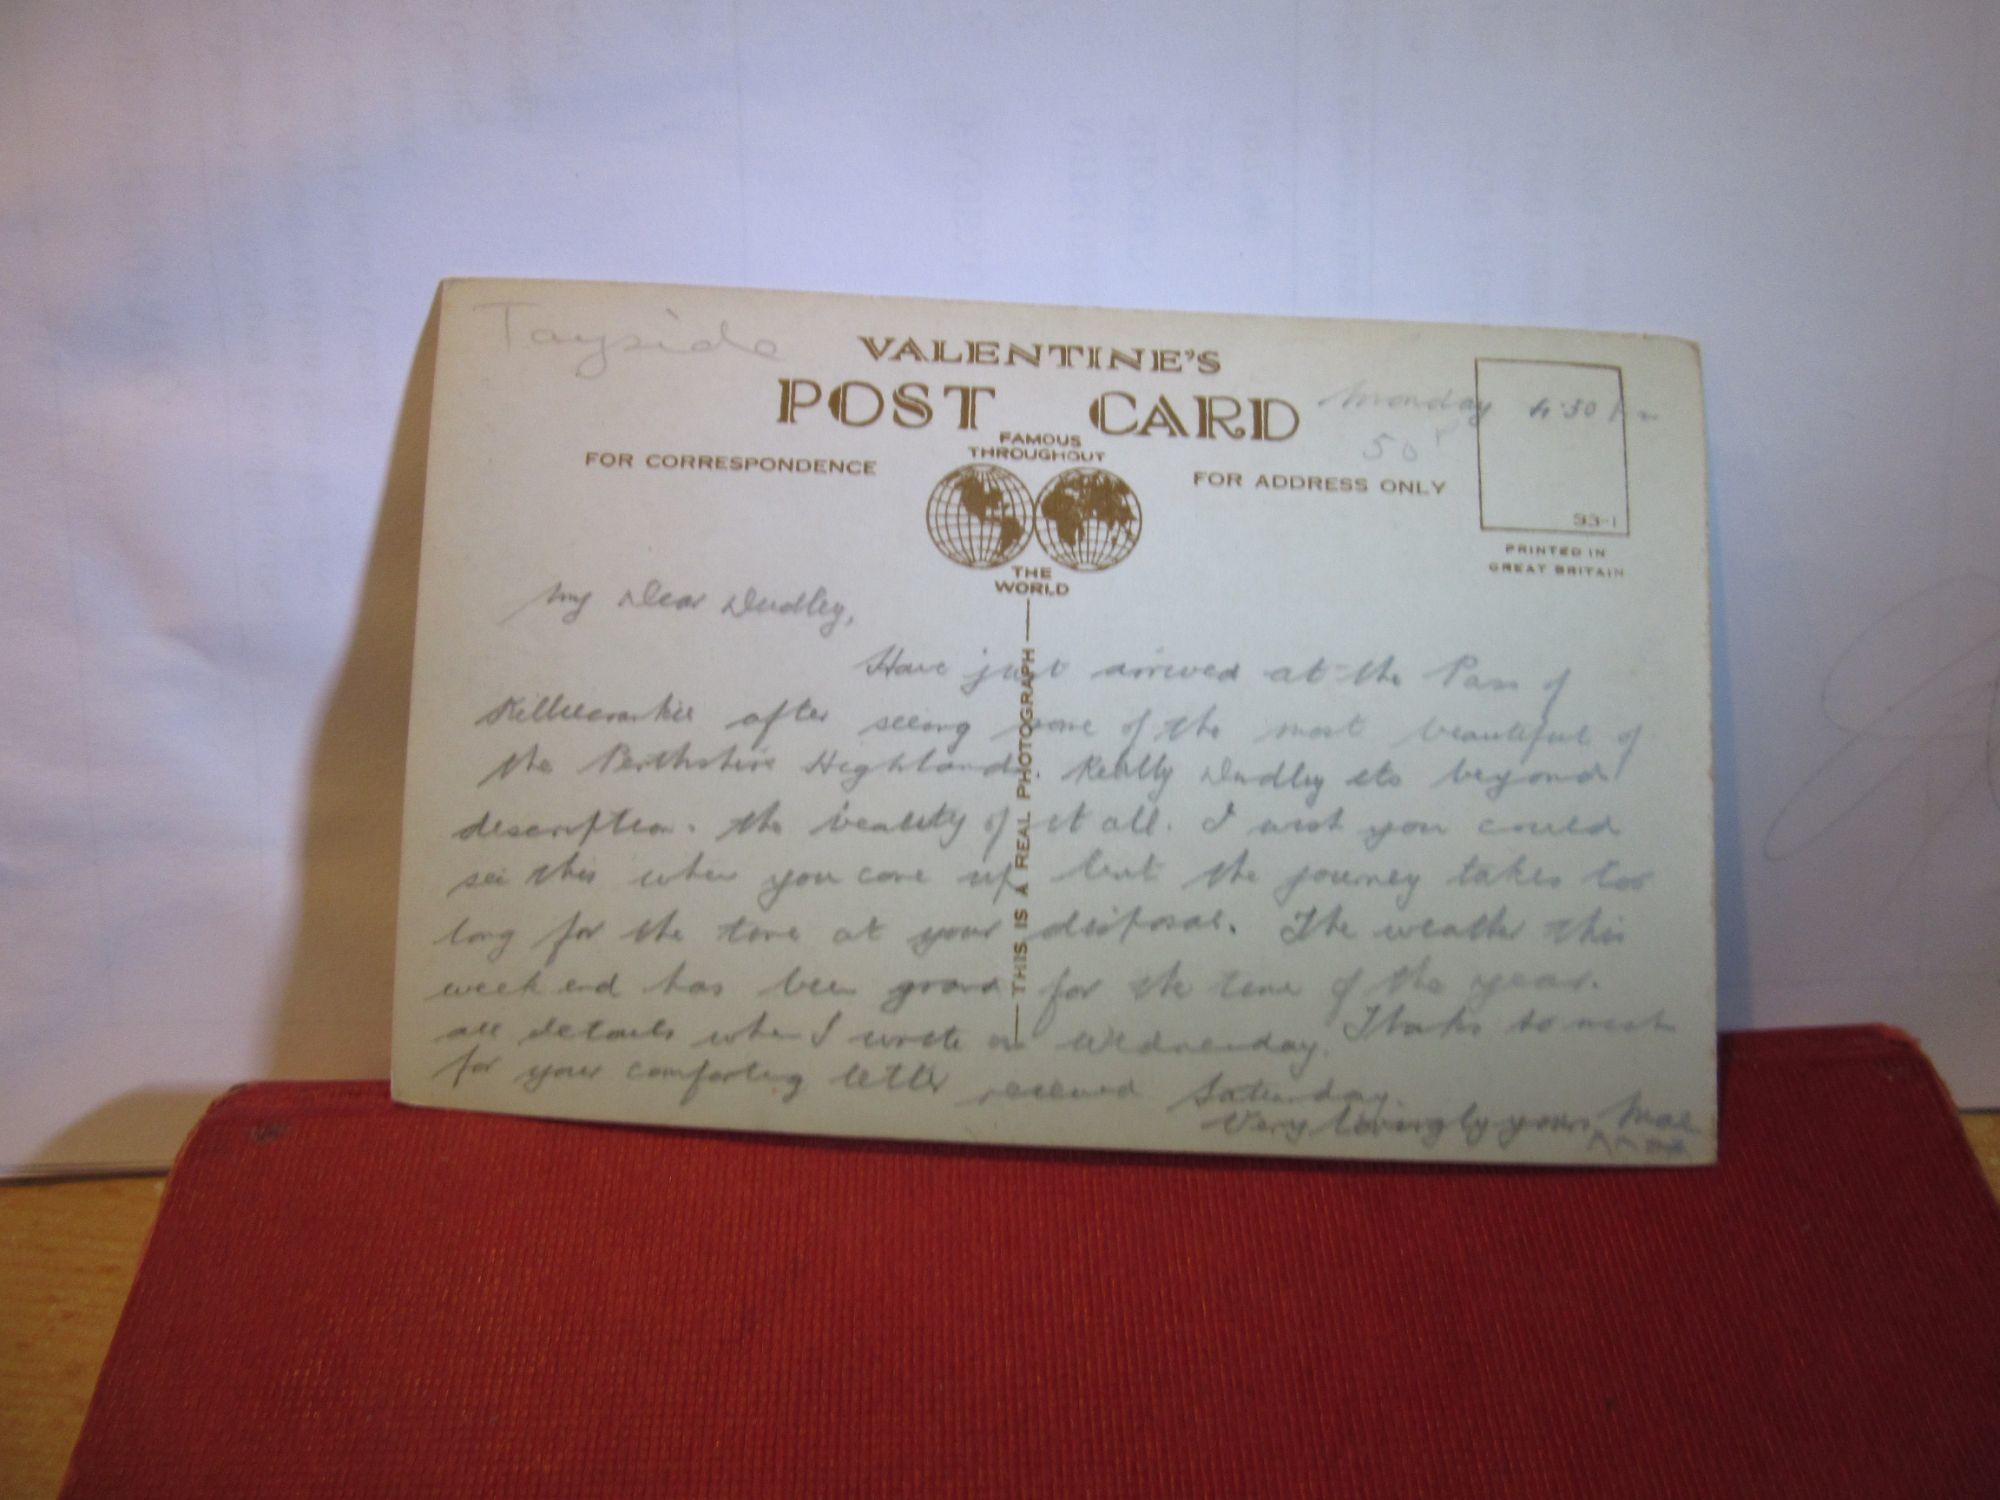 Tayside
VALENTINE'S
POST CARD
Monday 4.30 pm
50P
FAMOUS
THROUGHOUT
THE
WORLD
FOR CORRESPONDENCE
FOR ADDRESS ONLY
S3-1
PRINTED IN
GREAT BRITAIN
THIS IS A REAL PHOTOGRAPH
My Dear Dudley,
Have just arrived at the Pass of
Killiecrankie after seeing some of the most beautiful of
the Perthshire Highlands. Really Dudley its beyond
description. the beauty of it all. I wish you could
see this when you come up but the journey takes too
long for the time at your disposal. The weather this
week end has been grand for the time of the year.
all details when I write on Wednesday. Thanks so much
for your comforting letter received Saturday.
Very lovingly yours, Mae